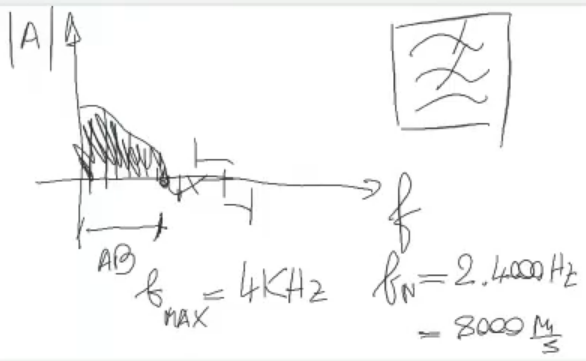 |A|
f
AB
fMAX = 4KHz
fN = 2.4000 Hz
= 8000 M/s